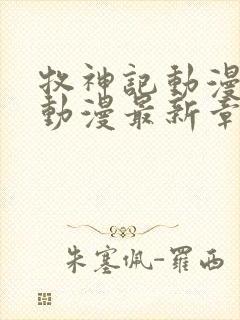 牧神記動漫
動漫最新章
朱塞佩-羅西